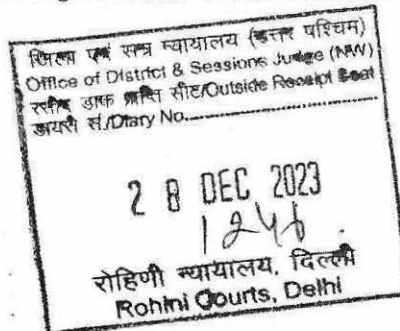 जिला एवं सत्र न्यायालय (उत्तर पश्चिम)
Office of District & Sessions Judge (NW)
रसीद डाक प्राप्ति सीट/Outside Receipt Seat
डायरी सं./Diary No.
2 8 DEC 2023
1246
रोहिणी न्यायालय, दिल्ली
Rohini Courts, Delhi